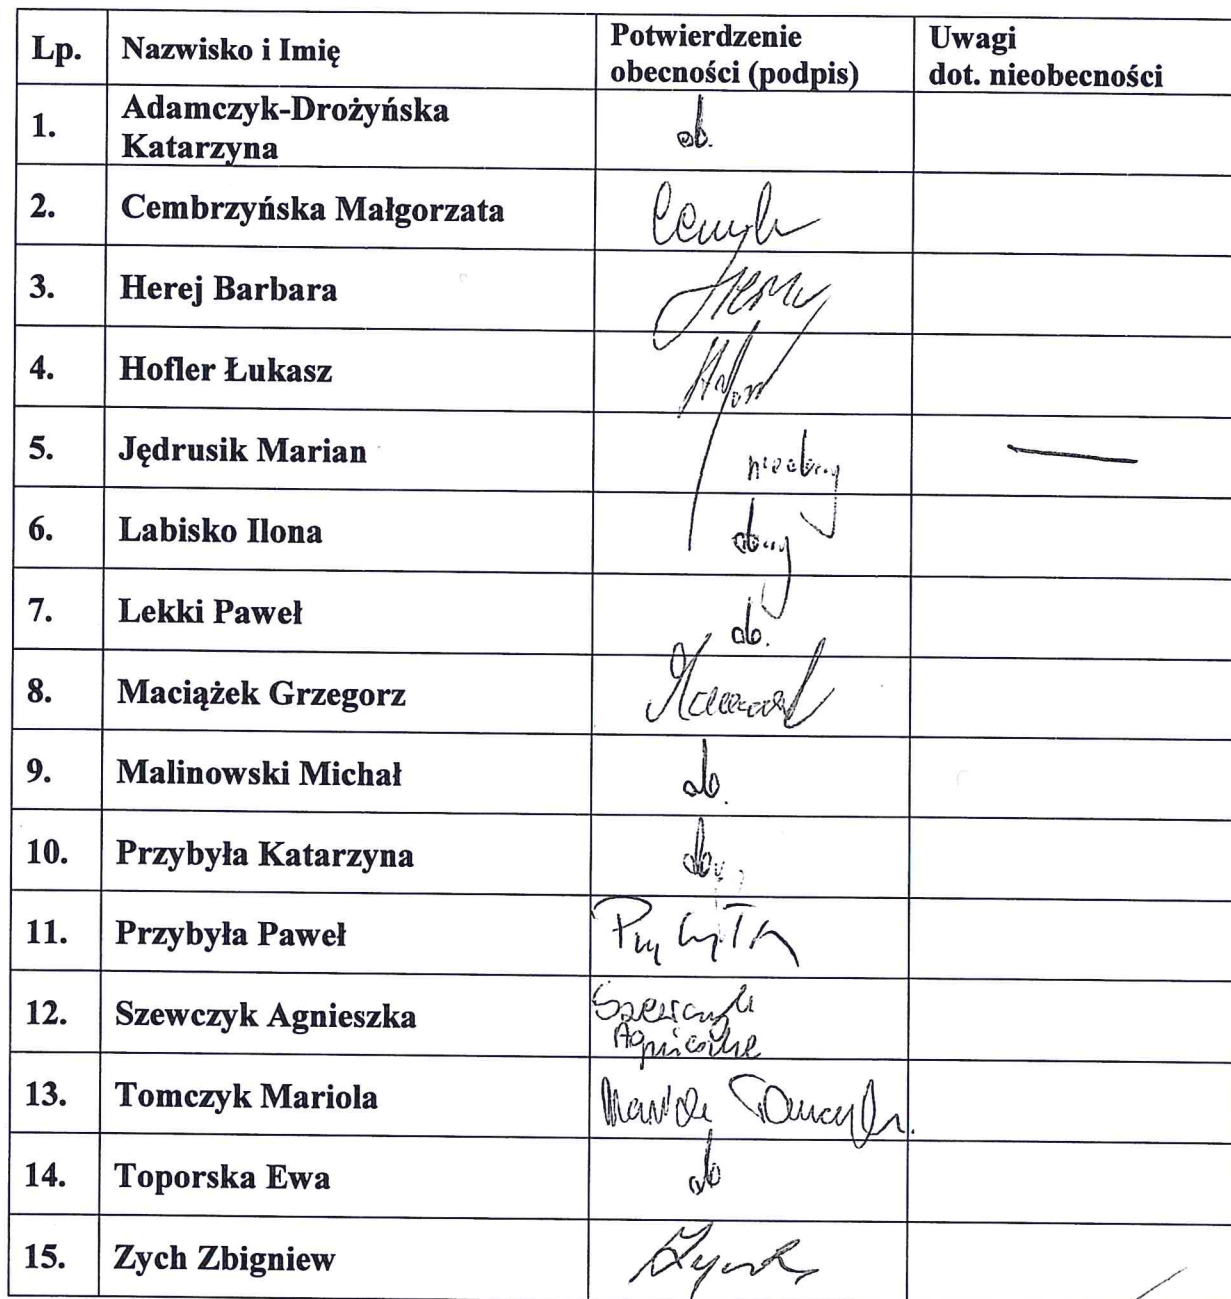 Lp. Nazwisko i Imię Potwierdzenie obecności (podpis) Uwagi dot. nieobecności
1. Adamczyk-Drożyńska Katarzyna ob.
2. Cembrzyńska Małgorzata
3. Herej Barbara
4. Hofler Łukasz
5. Jędrusik Marian nieobecny —
6. Labisko Ilona
7. Lekki Paweł ob.
8. Maciążek Grzegorz
9. Malinowski Michał ob.
10. Przybyła Katarzyna
11. Przybyła Paweł Przybyła
12. Szewczyk Agnieszka Szewczyk Agnieszka
13. Tomczyk Mariola Mariola Tomczyk
14. Toporska Ewa ob
15. Zych Zbigniew